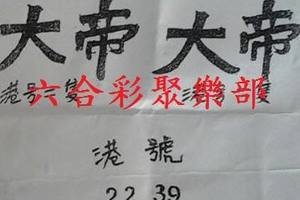 大帝 大帝
港号二隻
六合彩聚樂部
港號
22 39